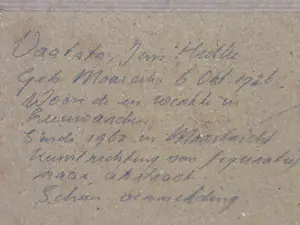 Vaatstra, Jan Hielke
Geb. Maarssen 6 Oct 1926
Woonde en werkte in
Leeuwarden
Sinds 1962 in Maastricht
Kunstrichting van figuratief
naar abstract
Schum vermelding